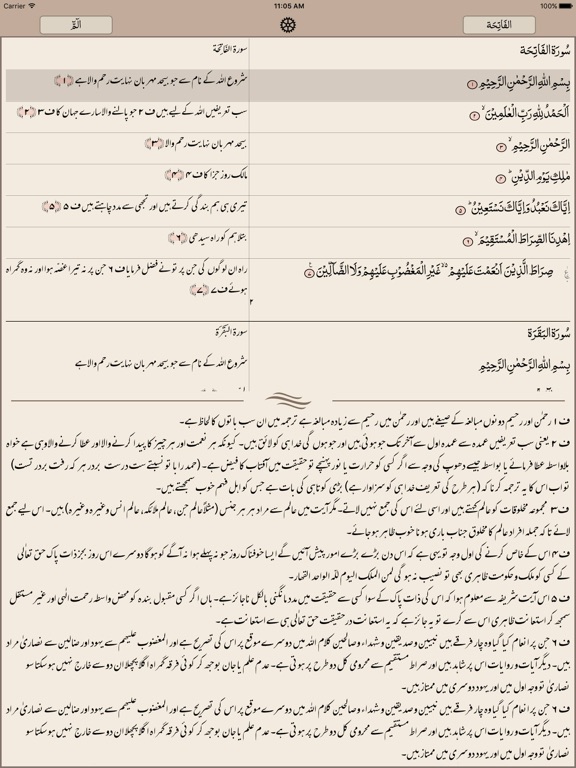 Carrier 11:05 AM 100%
الٓمّٓ الفَاتِحَة
سُورَة الفَاتِحَة سورۃ الفَاتِحَة
بِسْمِ اللّٰهِ الرَّحْمٰنِ الرَّحِيْمِ ۝١ شروع اللہ کے نام سے جو بیحد مہربان نہایت رحم والا ہے ﴿١﴾
اَلْحَمْدُ لِلّٰهِ رَبِّ الْعٰلَمِيْنَ ۙ۝٢ سب تعریفیں اللہ کے لیے ہیں ف ۲ جو پالنے والا سارے جہان کا ف۳ ﴿۲﴾
الرَّحْمٰنِ الرَّحِيْمِ ۙ۝٣ بیحد مہربان نہایت رحم والا ﴿۳﴾
مٰلِكِ يَوْمِ الدِّيْنِ ؕ۝٤ مالک روز جزا کا ف ۴ ﴿۴﴾
اِيَّاكَ نَعْبُدُ وَاِيَّاكَ نَسْتَعِيْنُ ؕ۝٥ تیری ہی ہم بندگی کرتے ہیں اور تجھی سے مدد چاہتے ہیں ف ۵ ﴿۵﴾
اِهْدِنَا الصِّرَاطَ الْمُسْتَقِيْمَ ۙ۝٦ بتلا ہم کو راہ سیدھی ﴿۶﴾
صِرَاطَ الَّذِيْنَ اَنْعَمْتَ عَلَيْهِمْ ۙ۬ غَيْرِ الْمَغْضُوْبِ عَلَيْهِمْ وَلَا الضَّآلِّيْنَ ۝٧ راہ ان لوگوں کی جن پر تو نے فضل فرمایا ف ۶ جن پر نہ تیرا غصہ ہوا اور نہ وہ گمراہ
ہوئے ف ۷ ﴿۷﴾
۲
سُورَة البَقَرَة سورۃ البَقَرَة
بِسْمِ اللّٰهِ الرَّحْمٰنِ الرَّحِيْمِ شروع اللہ کے نام سے جو بیحد مہربان نہایت رحم والا ہے
ف ۱ رحمٰن اور رحیم دونوں مبالغہ کے صیغے ہیں اور رحمٰن میں رحیم سے زیادہ مبالغہ ہے ترجمہ میں ان سب باتوں کا لحاظ ہے۔
ف ۲ یعنی سب تعریفیں عمدہ سے عمدہ اول سے آخر تک جو ہوئی ہیں اور جو ہوں گی خدا ہی کو لائق ہیں۔ کیونکہ ہر نعمت اور ہر چیز کا پیدا کرنے والا اور عطا کرنے والا وہی ہے خواہ
بلاواسطہ عطا فرمائے یا بالواسطہ جیسے دھوپ کی وجہ سے اگر کسی کو حرارت یا نور پہنچے تو حقیقت میں آفتاب کا فیض ہے۔ (حمد را با تو نسبتے ست درست بر در ہر کہ رفت بر در تست)
تو اب اس کا یہ ترجمہ کرنا کہ (ہر طرح کی تعریف خدا ہی کو سزاوار ہے) بڑی کوتاہی کی بات ہے جس کو اہل فہم خوب سمجھتے ہیں۔
ف ۳ مجموعہ مخلوقات کو عالم کہتے ہیں اور اسی لئے اس کی جمع نہیں لاتے۔ مگر آیت میں عالم سے مراد ہر ہر جنس (مثلاً عالم جن، عالم ملائکہ، عالم انس وغیرہ وغیرہ) ہیں۔ اس لیے جمع
لائے تاکہ جملہ افراد عالم کا مخلوق جناب باری ہونا خوب ظاہر ہو جائے۔
ف ۴ اس کے خاص کرنے کی اول وجہ تو یہی ہے کہ اس دن بڑے بڑے امور پیش آئیں گے ایسا خوفناک روز جو نہ پہلے ہوا نہ آگے کو ہو گا دوسرے اس روز بجز ذات پاک حق تعالٰی
کے کسی کو ملک و حکومت ظاہری بھی تو نصیب نہ ہو گی لمن الملک الیوم للہ الواحد القہار۔
ف ۵ اس آیت شریفہ سے معلوم ہوا کہ اس کی ذات پاک کے سوا کسی سے حقیقت میں مدد مانگنی بالکل ناجائز ہے۔ ہاں اگر کسی مقبول بندہ کو محض واسطہ رحمت الٰہی اور غیر مستقل
سمجھ کر استعانت ظاہری اس سے کرے تو یہ جائز ہے کہ یہ استعانت در حقیقت حق تعالٰی ہی سے استعانت ہے۔
ف ۶ جن پر انعام کیا گیا وہ چار فرقے ہیں نبیین و صدیقین و شہداء و صالحین کلام اللہ میں دوسرے موقع پر اس کی تصریح ہے اور المغضوب علیہم سے یہود اور ضالین سے نصاریٰ مراد
ہیں۔ دیگر آیات و روایات اس پر شاہد ہیں اور صراط مستقیم سے محرومی کل دو طرح پر ہوتی ہے۔ عدم علم یا جان بوجھ کر کوئی فرقہ گمراہ اگلا پچھلا ان دو سے خارج نہیں ہو سکتا سو
نصاریٰ تو وجہ اول میں اور یہود دوسری میں ممتاز ہیں۔
ف ۶ جن پر انعام کیا گیا وہ چار فرقے ہیں نبیین و صدیقین و شہداء و صالحین کلام اللہ میں دوسرے موقع پر اس کی تصریح ہے اور المغضوب علیہم سے یہود اور ضالین سے نصاریٰ مراد
ہیں۔ دیگر آیات و روایات اس پر شاہد ہیں اور صراط مستقیم سے محرومی کل دو طرح پر ہوتی ہے۔ عدم علم یا جان بوجھ کر کوئی فرقہ گمراہ اگلا پچھلا ان دو سے خارج نہیں ہو سکتا سو
نصاریٰ تو وجہ اول میں اور یہود دوسری میں ممتاز ہیں۔